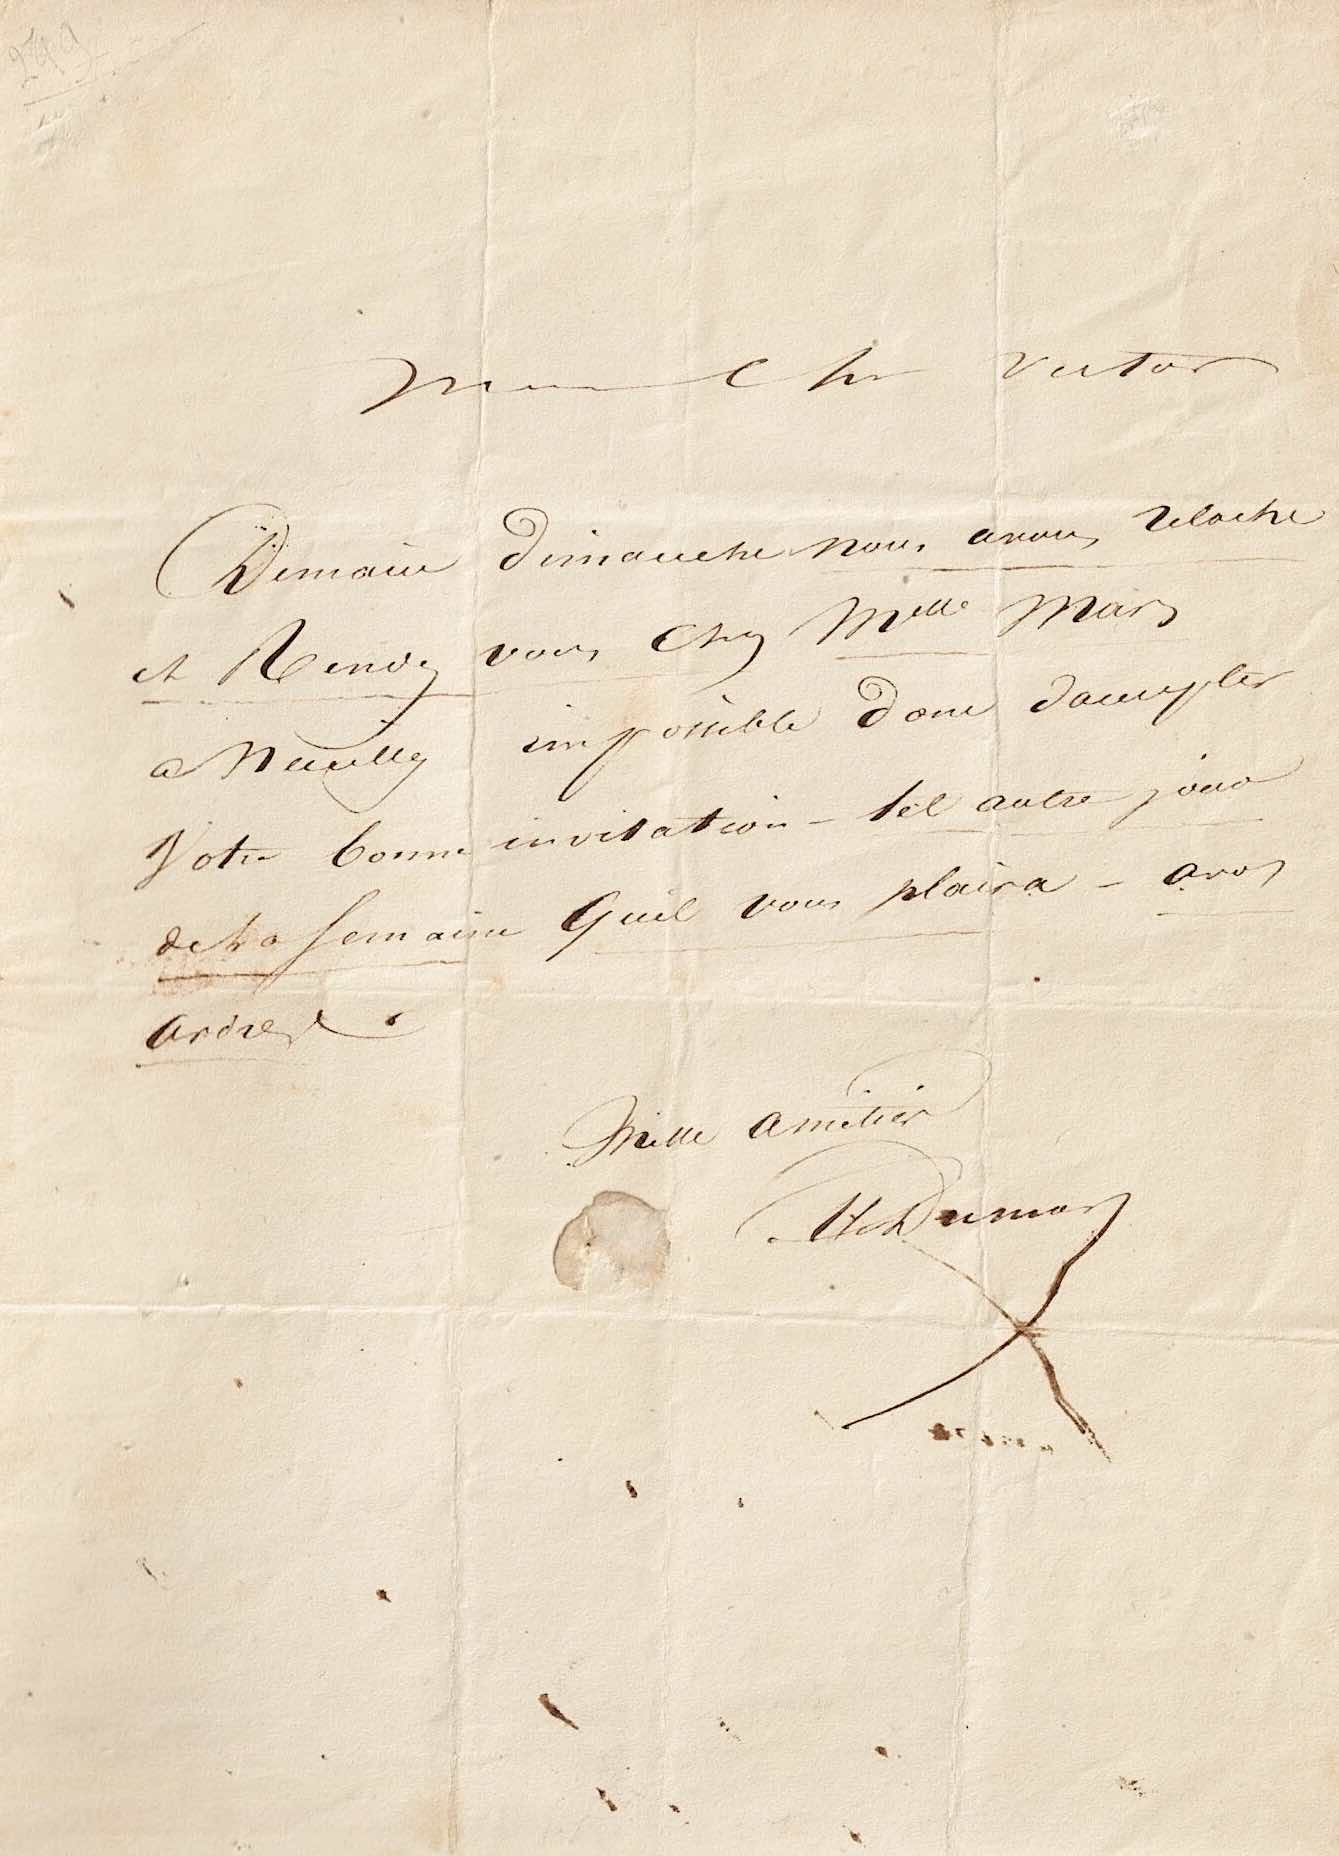 299
Mon Cher Victor
Demain dimanche nous avons relache
et Rendez vous Chez Melle Mars
a Neuilly impossible donc daccepter
Votre bonne invitation – tel autre jour
de la semaine Quil vous plaira – a vos
ordres.
Mille amitiés
Al Dumas